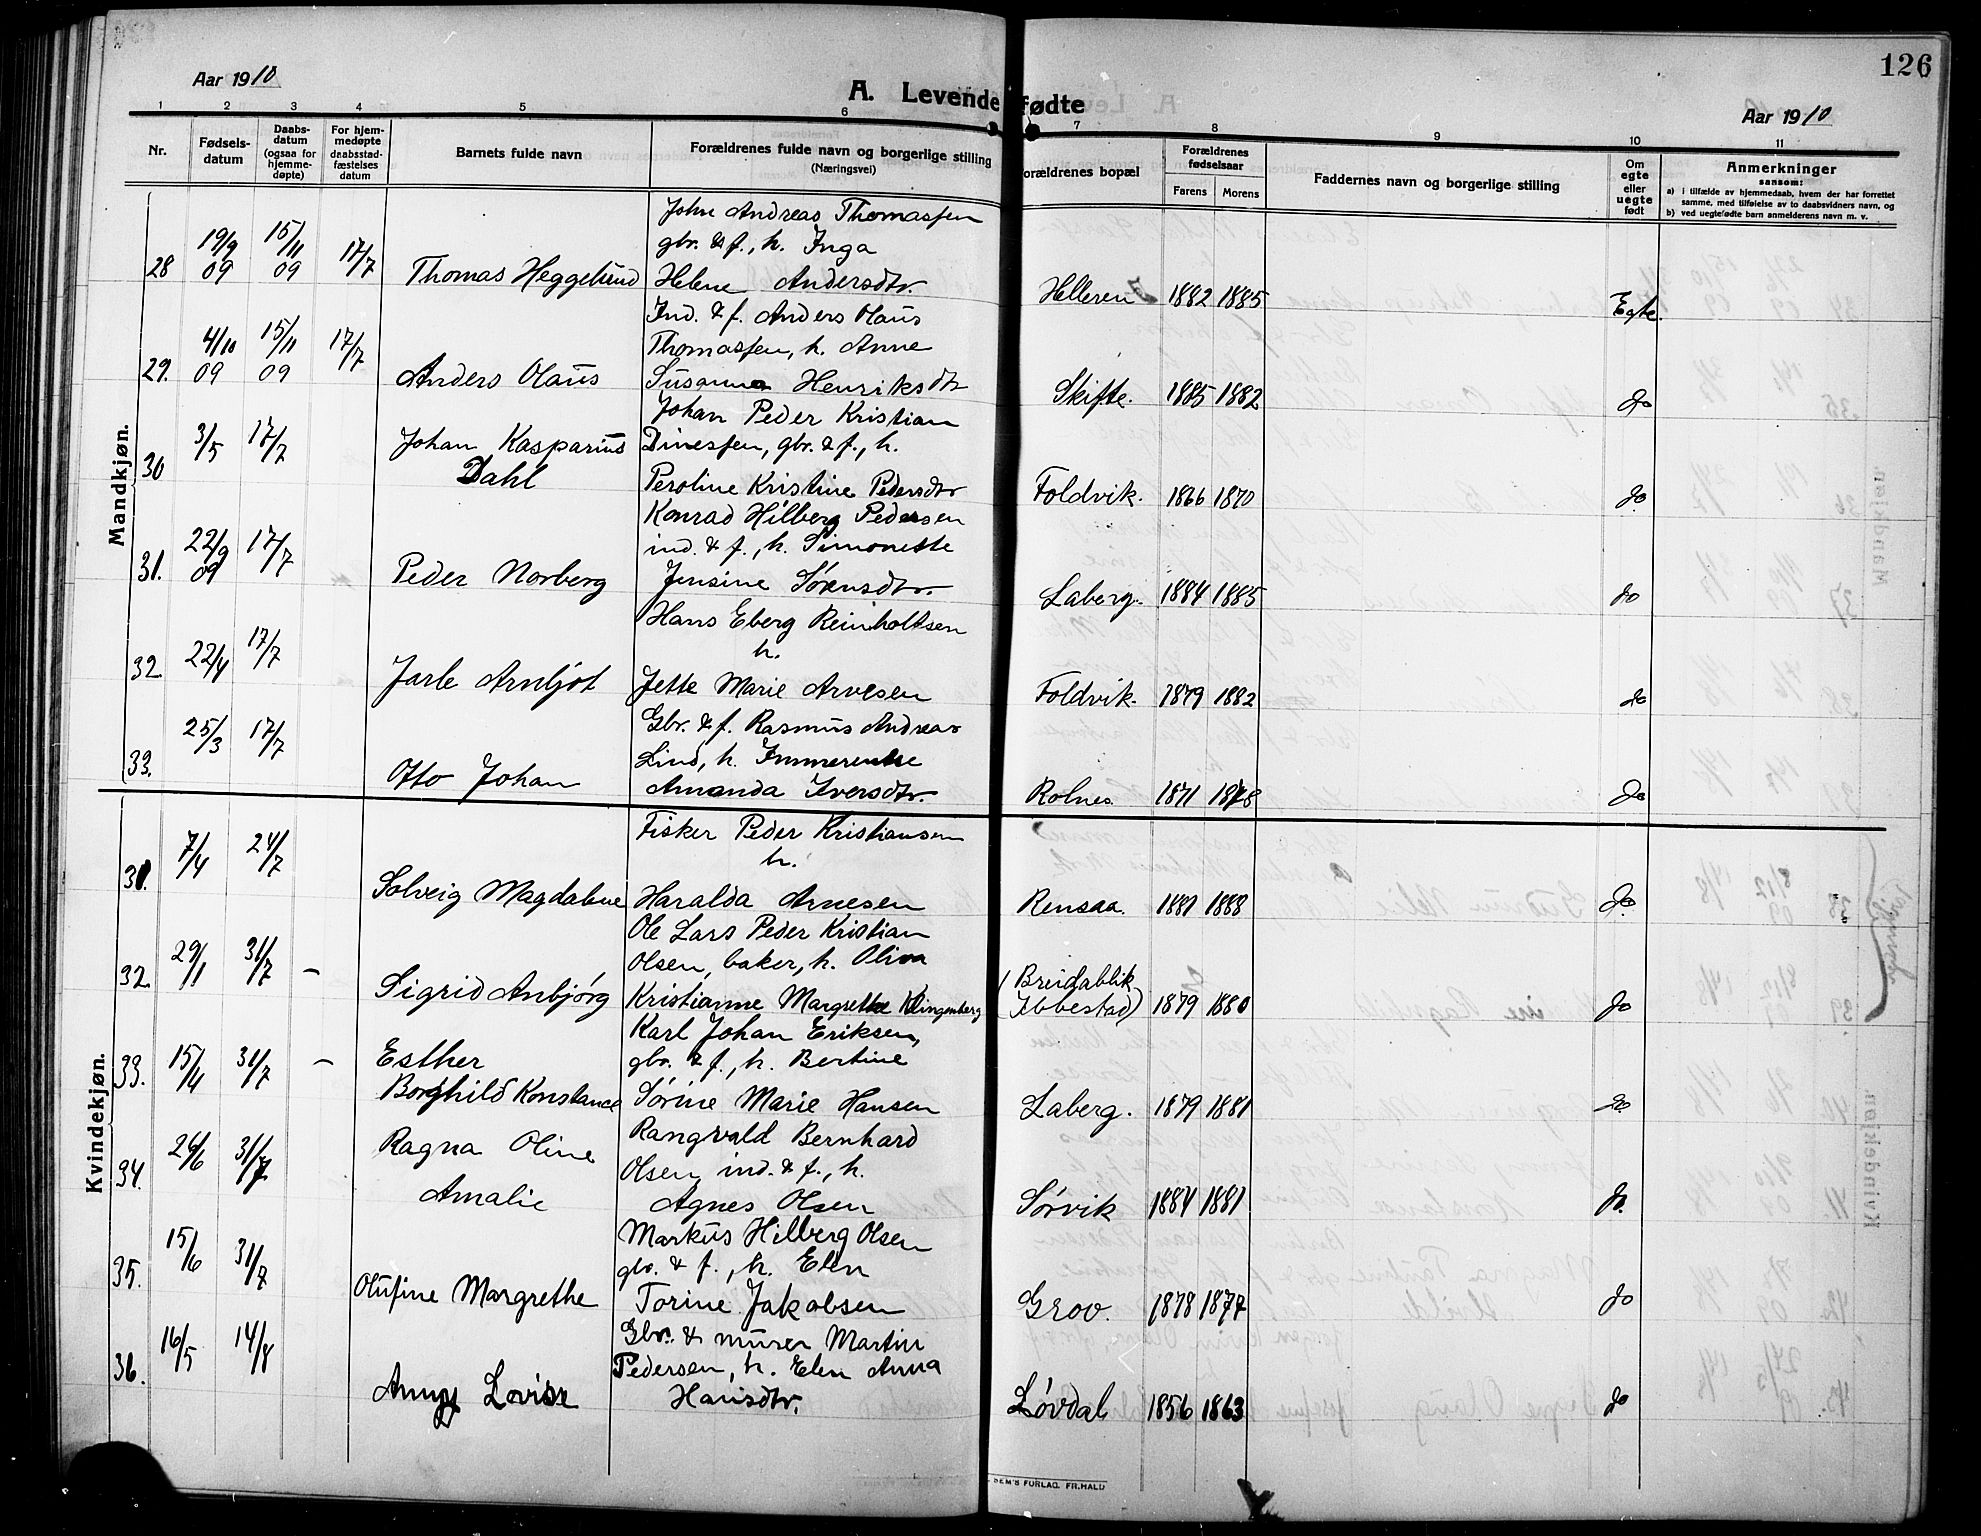 126
Aar 1910
A. Levende Fødte
Aar 1910
1 2 3 4 5 6 7 8 9 10 11
Nr.
Fødsels-
datum
Daabs-
datum
(ogsaa for
hjemme-
døpte)
For hjem-
medøpte
daabsstad-
fæstelses
datum
Barnets fulde navn
Forældrenes fulde navn og borgerlige stilling
(Næringsvei)
Forældrenes bopæl
Forældrenes
fødselsaar
Farens Morens
Faddernes navn og borgerlige stilling
Om
egte
eller
uegte
født
Anmerkninger
sansom:
a) i tilfælde av hjemmedaab, hvem der har forrettet
samme, med tilføielse av to daabsvidners navn, og
b) ved uegtefødte barn anmelderens navn m. v.
Mandkjøn.
John Andreas Thomassen
gbr. & f., h. Inga
28 19/9 09 15/11 09 17/7 Thomas Heggelund Helene Andersdtr. Helleren 1882 1885 Egte.
Ind. & f. Anders Olaus
Thomassen, h. Anne
29. 4/10 09 15/11 09 17/7 Anders Olaus Susanna Henriksdtr Skifte. 1885 1882 do
Johan Peder Kristian
30 3/5 17/7 Johan Kasparius Dinessen, gbr. & f., h.
Dahl Peroline Kristine Pedersdtr Foldvik. 1866 1870 do
Konrad Hilberg Pedersen
ind. & f., h. Simonette
31. 22/9 09 17/7 Peder Norberg Jensine Sørensdtr. Laberg. 1884 1885 do
Hans Eberg Reinholtsen
h.
32. 22/4 17/7 Jarle Arnljot Jette Marie Arnesen Foldvik. 1879 1882 do
Gbr. & f. Rasmus Andreas
Lind, h. Immerentse
33. 25/3 17/7 Otto Johan Amanda Iversdtr. Rolnes 1871 1878 do
Kvindekjøn.
Fisker Peder Kristiansen
h.
31. 7/4 24/7 Solveig Magdalene Haralda Arnesen Rensaa. 1881 1888 do.
Ole Lars Peder Kristian
Olsen, baker, h. Oliva
32. 29/1 31/7 – Sigrid Anbjørg Kristianne Margrethe Klingenberg (Breidablik, Ibbestad) 1879 1880 do
Karl Johan Eriksen,
33. 15/4 31/7 – Esther gbr. & f., h. Bertine
Borghild Konstance Sørine Marie Hansen Laberg. 1879 1881 do
Rangvald Bernhard
34. 26/6 31/7 Ragna Oline Olsen, ind. & f., h.
Amalie Agnes Olsen Sørvik 1884 1881 do.
Markus Hilberg Olsen
gbr. & f., h. Elen
35. 15/6 31/7 Olufine Margrethe Torine Jakobsen Grov. 1878 1877 do
Gbr. & murer Martin
Pedersen, h. Elen Anna
36. 16/5 14/8 Anny Lovise Hansdtr. Løvdal 1856 1863 do
SEM'S FORLAG, FR.HALD